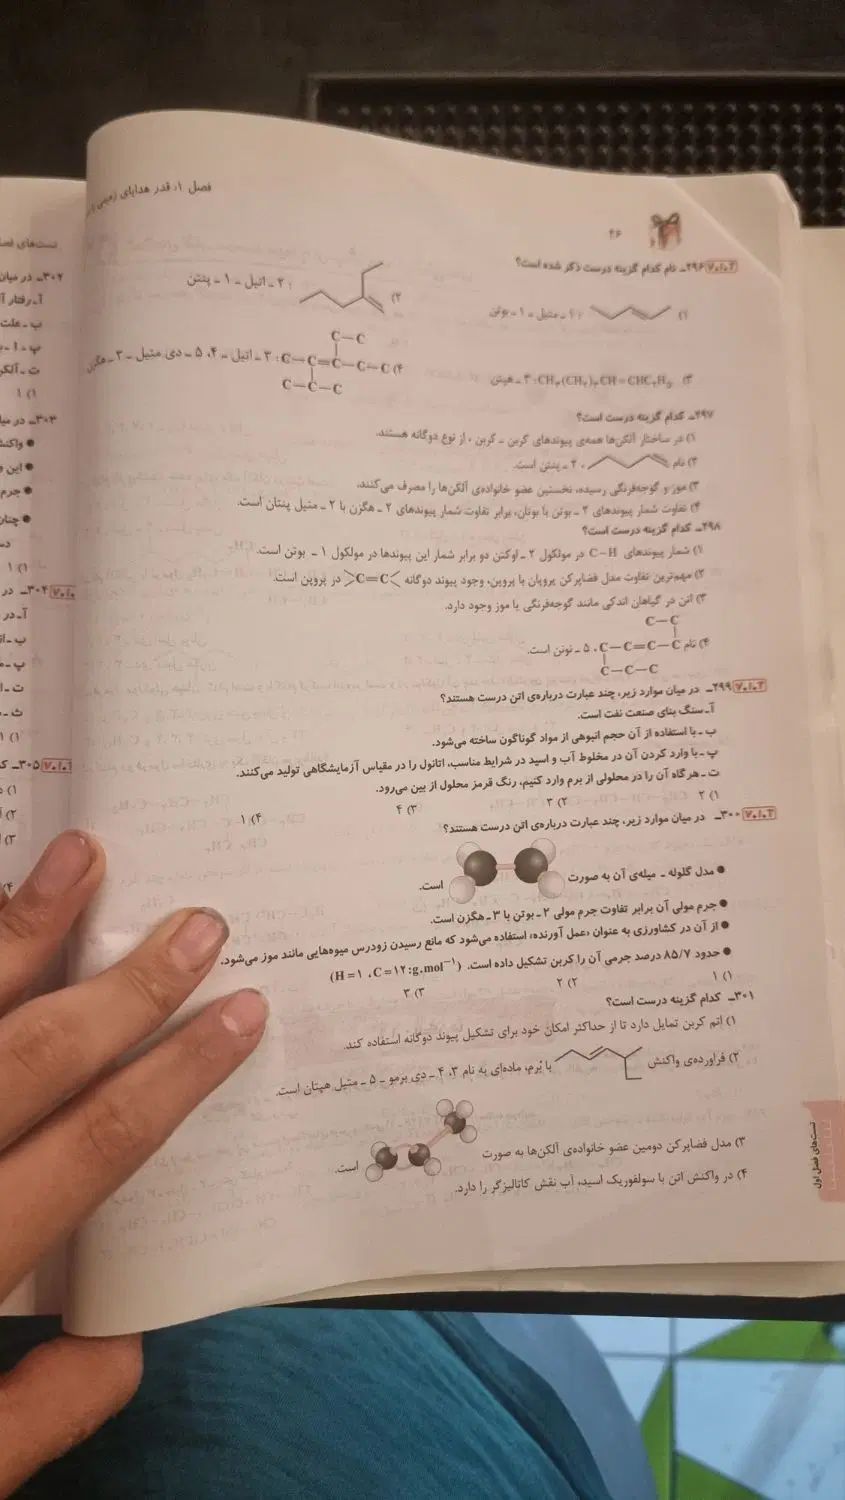 فصل ۱: قدر هدایای زمینی را
۴۶
۲۹۶ـ نام کدام گزینه درست ذکر شده است؟
۱) : ۴ ـ متیل ـ ۱ ـ بوتن
۲) : ۲ ـ اتیل ـ ۱ ـ پنتن
۳) CH₃(CH₂)₂CH=CHC₂H₅ : ۳ ـ هپتن
C—C
۴) C—C=C—C—C : ۳ ـ اتیل ـ ۴، ۵ ـ دی متیل ـ ۳ ـ هگزن
C—C—C
۲۹۷ـ کدام گزینه درست است؟
۱) در ساختار آلکن‌ها همه‌ی پیوندهای کربن ـ کربن ، از نوع دوگانه هستند.
۲) نام ، ۲ ـ پنتن است.
۳) موز و گوجه‌فرنگی رسیده، نخستین عضو خانواده‌ی آلکن‌ها را مصرف می‌کنند.
۴) تفاوت شمار پیوندهای ۲ ـ بوتن با بوتان، برابر تفاوت شمار پیوندهای ۲ ـ هگزن با ۲ ـ متیل پنتان است.
۲۹۸ـ کدام گزینه درست است؟
۱) شمار پیوندهای C–H در مولکول ۲ ـ اوکتن دو برابر شمار این پیوندها در مولکول ۱ ـ بوتن است.
۲) مهم‌ترین تفاوت مدل فضاپرکن پروپان با پروپن، وجود پیوند دوگانه >C=C< در پروپن است.
۳) اتن در گیاهان اندکی مانند گوجه‌فرنگی یا موز وجود دارد.
C—C
۴) نام C—C=C—C ، ۵ ـ نونن است.
C—C—C
۷.۱.۲ ۲۹۹ـ در میان موارد زیر، چند عبارت درباره‌ی اتن درست هستند؟
آـ سنگ بنای صنعت نفت است.
ب ـ با استفاده از آن حجم انبوهی از مواد گوناگون ساخته می‌شود.
پ ـ با وارد کردن آن در مخلوط آب و اسید در شرایط مناسب، اتانول را در مقیاس آزمایشگاهی تولید می‌کنند.
ت ـ هرگاه آن را در محلولی از برم وارد کنیم، رنگ قرمز محلول از بین می‌رود.
۱) ۲ ۲) ۳ ۳) ۴ ۴) ۱
۷.۱.۲ ۳۰۰ـ در میان موارد زیر، چند عبارت درباره‌ی اتن درست هستند؟
● مدل گلوله ـ میله‌ی آن به صورت است.
● جرم مولی آن برابر تفاوت جرم مولی ۲ ـ بوتن با ۳ ـ هگزن است.
● از آن در کشاورزی به عنوان «عمل آورنده» استفاده می‌شود که مانع رسیدن زودرس میوه‌هایی مانند موز می‌شود.
● حدود ۸۵/۷ درصد جرمی آن را کربن تشکیل داده است. (H=۱ ، C=۱۲:g.mol⁻¹)
۱) ۱ ۲) ۲ ۳) ۳
۳۰۱ـ کدام گزینه درست است؟
۱) اتم کربن تمایل دارد تا از حداکثر امکان خود برای تشکیل پیوند دوگانه استفاده کند.
۲) فراورده‌ی واکنش با بُرم، ماده‌ای به نام ۳، ۴ ـ دی برمو ـ ۵ ـ متیل هپتان است.
۳) مدل فضاپرکن دومین عضو خانواده‌ی آلکن‌ها به صورت است.
۴) در واکنش اتن با سولفوریک اسید، آب نقش کاتالیزگر را دارد.
تست‌های فصل اول
۳۰۲ـ در میان
آـ رفتار آ
ب ـ علت
۳۰۳ـ در میان
● واکنش
● این و
● جرم
● چنان
۳۰۴ـ در
آـ در
۳۰۵ـ